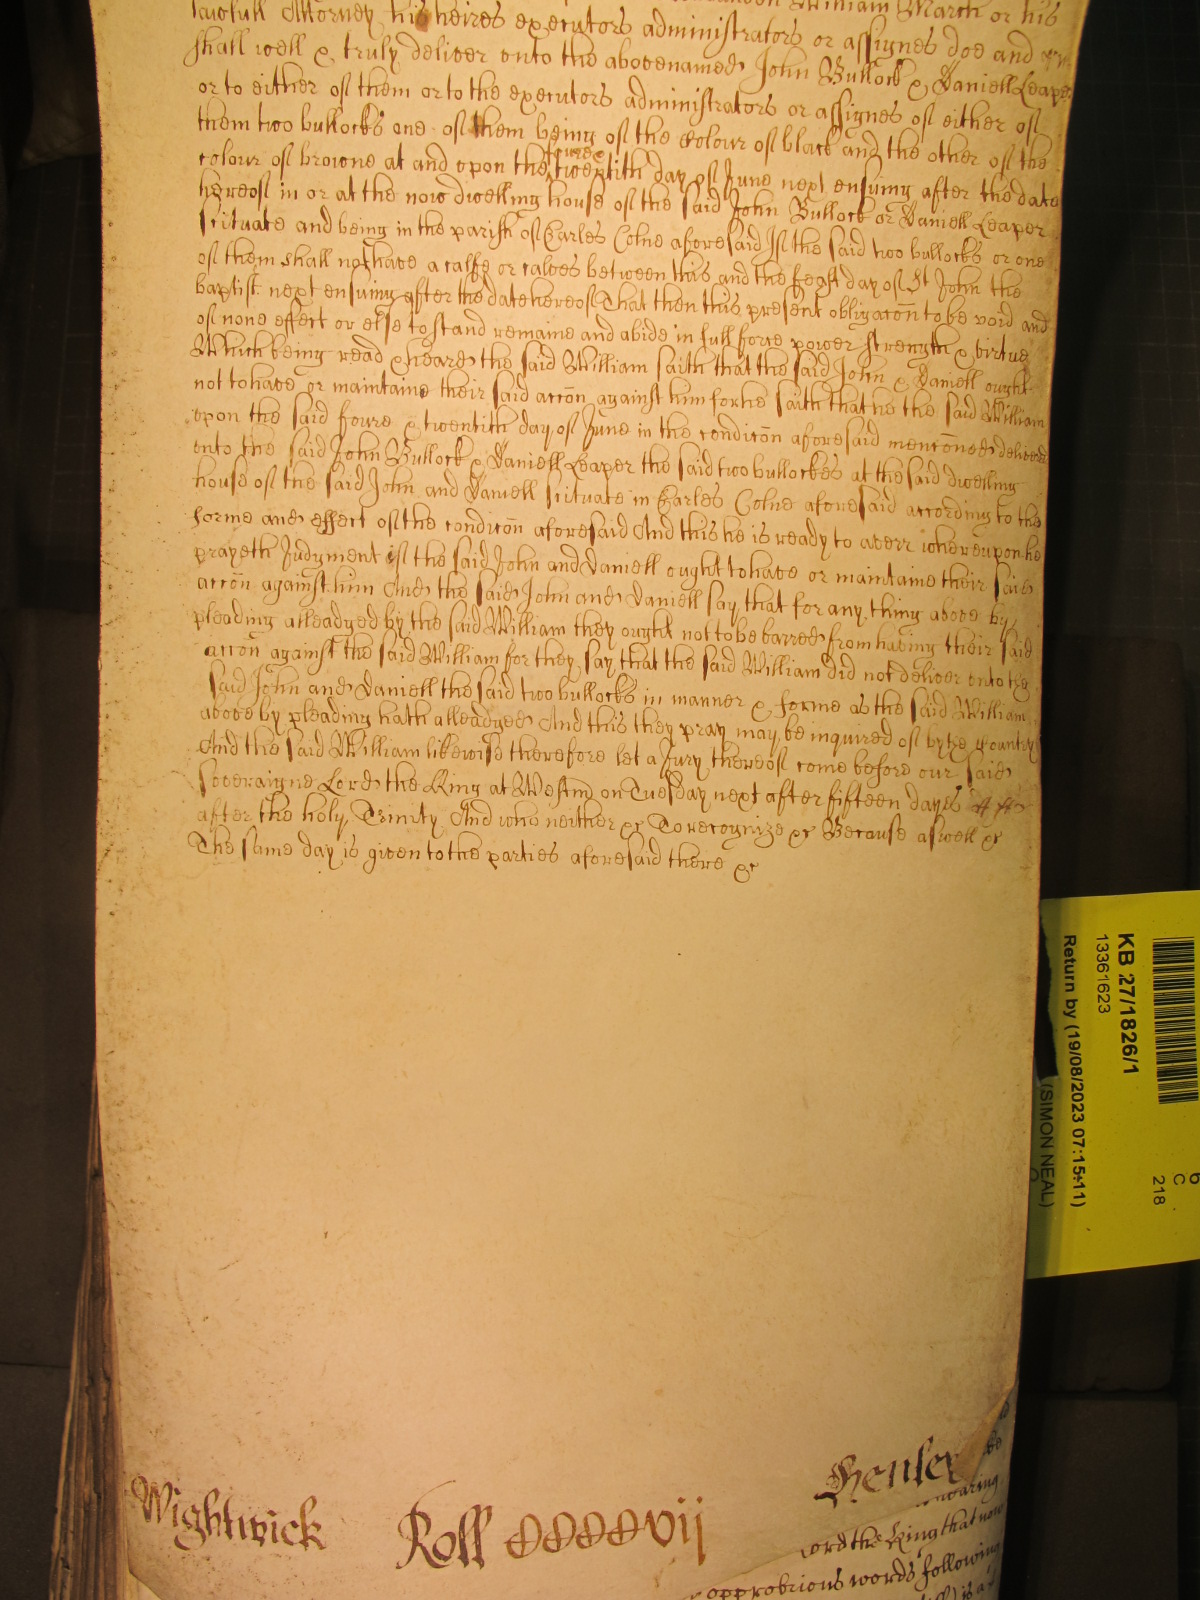 William March or his
lawfull Attorney his heires executors administrators or assignes doe and
shall well & truly deliver unto the abovenamed John Bullock & Daniell Leaper
or to either of them or to the executors administrators or assignes of either of
them two bullocks one of them being of the Colour of black and the other of the
colour of browne at and upon the foure & twentith day of June next ensuing after the date
hereof in or at the now dwelling house of the said John Bullock or Daniell Leaper
scituate and being in the parish of Earles Colne aforesaid If the said two bullocks or one
of them shall not have a calfe or calves between this and the feast day of St John the
baptist next ensuing after the date hereof That then this present obligacon to be void and
of none effect or else to stand remaine and abide in full force power strength & virtue
Which being read & heard the said William saith that the said John & Daniell ought
not to have or maintaine their said accon against him for he saith that he the said William
upon the said foure & twentith day of June in the condicon aforesaid menconed delivered
unto the said John Bullock & Daniell Leaper the said two bullockes at the said dwelling
house of the said John and Daniell scituate in Earles Colne aforesaid according to the
forme and effect of the condicon aforesaid And this he is ready to averr whereupon he
prayeth Judgment if the said John and Daniell ought to have or maintaine their said
accon against him And the said John and Daniell say that for any thing above by
pleading alleadged by the said William they ought not to be barred from having their said
accon against the said William for they say that the said William did not deliver unto the
said John and Daniell the said two bullocks in manner & forme as the said William
above by pleading hath alleadged And this they pray may be inquired of by the Country
And the said William likewise therefore let a Jury thereof come before our said
Soveraigne Lord the King at Westm on Tuesday next after fifteen dayes
after the holy Trinity And who neither &c To recognize &c Because aswell &c
The same day is given to the parties aforesaid there &c
Wightwick Roll CCCCvij Henley
ord the King that now
opprobrious words following
KB 27/1826/1
13361623
Return by (19/08/2023 07:15:11)
(SIMON NEAL)
6
C
218